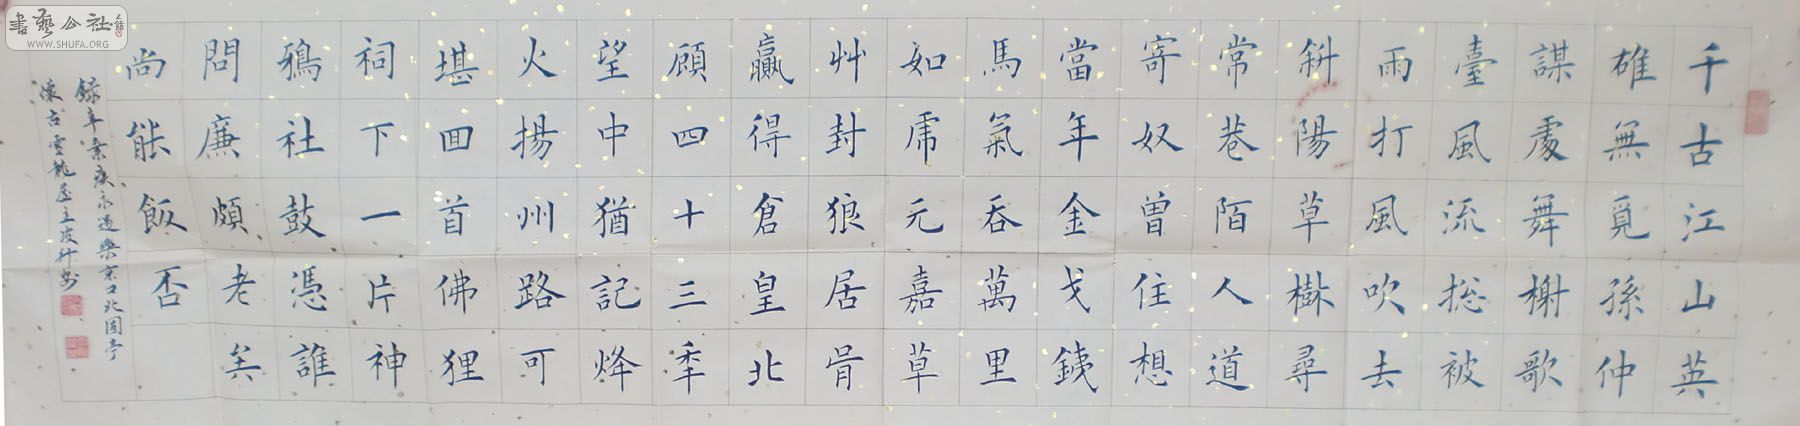 千古江山英
雄無覓孫仲
謀處舞榭歌
臺風流摠被
雨打風吹去
斜陽草樹尋
常巷陌人道
寄奴曾住想
當年金戈銕
馬氣吞萬里
如虎元嘉草
艸封狼居胥
贏得倉皇北
顧四十三秊
望中猶記烽
火揚州路可
堪囬首佛狸
祠下一片神
鴉社鼓憑誰
問廉頗老矣
尚能飯否
錄辛棄疾永遇樂京口北固亭
懷古雲龍
書藝公社
WWW.SHUFA.ORG